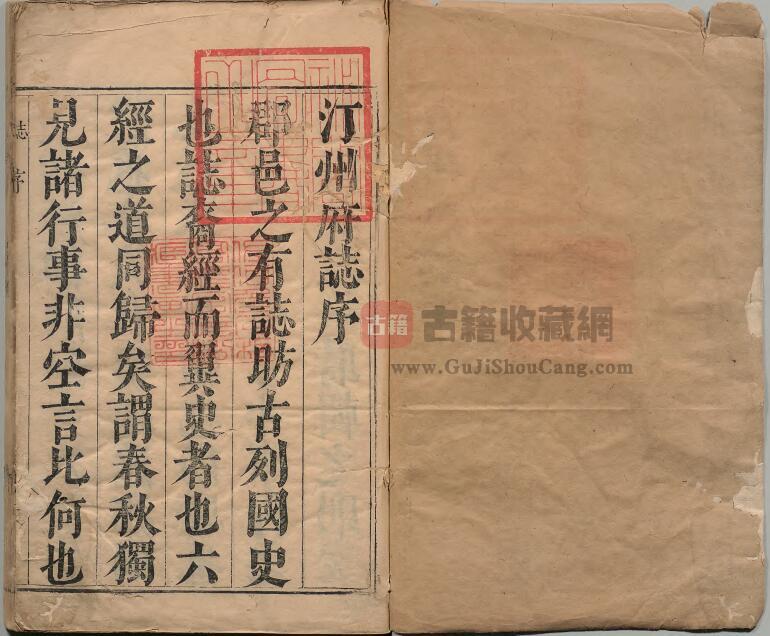 汀州府誌序
郡邑之有誌昉古列國史
也誌裔經而翼史者也六
經之道同歸矣謂春秋獨
見諸行事非空言比何也
誌序
古籍 古籍收藏網
www.GuJiShouCang.com